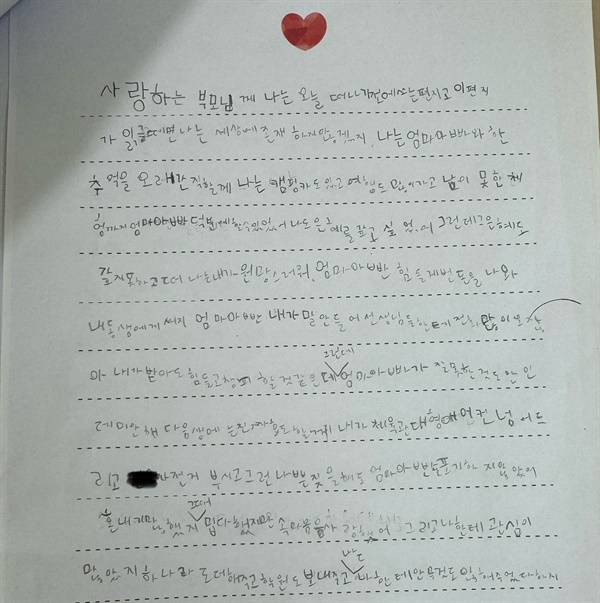 사랑하는 부모님께 나는 오늘 떠나기전에쓰는편지고 이편지
가 읽글때면 나는 세상에 존재 하지만겠지 나는 엄마아빠와 한
추억을 오래간직할게 나는 캠핑카도있고 여행도 많이가고 남이 못한 체
험까지 엄마아빠 덕분에할수있었어 나도은혜를 갚고 싶었어 그런데그은혜도
갚지못하고떠나는내가 원망스러워. 엄마아빠 힘들게번돈을 나와
내동생에게써지 엄마아빠 내가말안들어선생님들한테 전화많이오잖
아 내가받아도힘들고창피 할것같은데 그런데 엄마아빠가 잘못한것도안인
데미안해 다음생에는 효도할게 내가 체육관대형에어컨 넘어트
리고 자전거 부시고그런 나쁜짓을해도 엄마아빠는포기하지않았어
혼내기만했지 그때 밉다했지만 속마음은사랑했어 그리고나한테관심이
많았지하나라도더해주고학원도보내주고 나는 나한테안무것도안해주었다하지